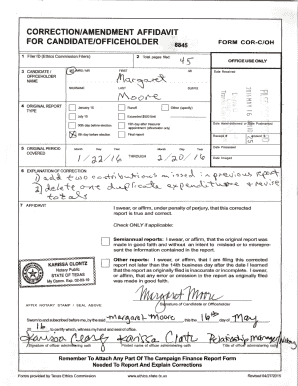 CORRECTION/AMENDMENT AFFIDAVIT
FOR CANDIDATE/OFFICEHOLDER 8845 FORM COR-C/OH
1 Filer ID (Ethics Commission Filers)
2 Total pages filed: 45
OFFICE USE ONLY
3 CANDIDATE / OFFICEHOLDER NAME
FIRST
Margaret
NICKNAME LAST SUFFIX
Moore
Date Received
4 ORIGINAL REPORT TYPE
January 15 Runoff Other (specify)
July 15 Exceeded $500 limit
30th day before election 15th day after treasurer appointment (officeholder only)
8th day before election Final report
Date Hand-delivered or Date Postmarked
Receipt #
Date Processed
Date Imaged
5 ORIGINAL PERIOD COVERED
Month Day Year Month Day Year
1/22/16 THROUGH 2/20/16
6 EXPLANATION OF CORRECTION
1) add two contributions missed in previous report
2) delete one duplicate expenditure & revise
totals
7 AFFIDAVIT
I swear, or affirm, under penalty of perjury, that this corrected
report is true and correct.
Check ONLY if applicable:
Semiannual reports: I swear, or affirm, that the original report was
made in good faith and without an intent to mislead or to misrepre-
sent the information contained in the report.
Other reports: I swear, or affirm, that I am filing this corrected
report not later than the 14th business day after the date I learned
that the report as originally filed is inaccurate or incomplete. I swear,
or affirm, that any error or omission in the report as originally filed
was made in good faith.
KARISSA CLONTZ
Notary Public
STATE OF TEXAS
Margaret Moore
Signature of Candidate or Officeholder
AFFIX NOTARY STAMP / SEAL ABOVE
Sworn to and subscribed before me, by the said Margaret Moore this the 16th day of May
20 16 to certify which, witness my hand and seal of office.
Karissa Clontz Karissa Clontz Relationship manager/Notary
Signature of officer administering oath Printed name of officer administering oath Title of officer administering oath
Remember To Attach Any Part Of The Campaign Finance Report Form
Needed To Report And Explain Corrections
Forms provided by Texas Ethics Commission www.ethics.state.tx.us Revised 04/27/2015